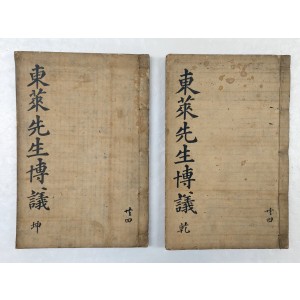 東萊先生博議
乾
廿四
東萊先生博議
坤
廿四